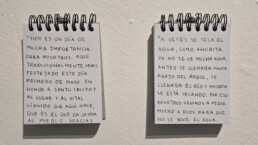 "HOY ES UN DÍA DE
MUCHA IMPORTANCIA
PARA NOSOTROS. AQUÍ
TRADICIONALMENTE HEMOS
FESTEJADO ESTE DÍA
PRIMERO DE MAYO. EN
HONOR A SANTO CRISTO Y
AL LUGAR Y AL VITAL
LÍQUIDO QUE AQUÍ NACE,
QUE ES EL QUE DA
AL PUEBLO. GRACIAS
"A VECES SE SECA EL
AGUA, COMO AHORITA.
YA NO SE VE MUCHA AGUA,
ANTES SE LLENABA HASTA
ABAJO DEL ÁRBOL, SE
LLENABA EL RÍO Y AHORITA
SE ESTÁ SECANDO.
NOSOTROS VENIMOS A PEDIR
MUCHO A DIOS PARA QUE
NO SE QUITE EL AGUA.